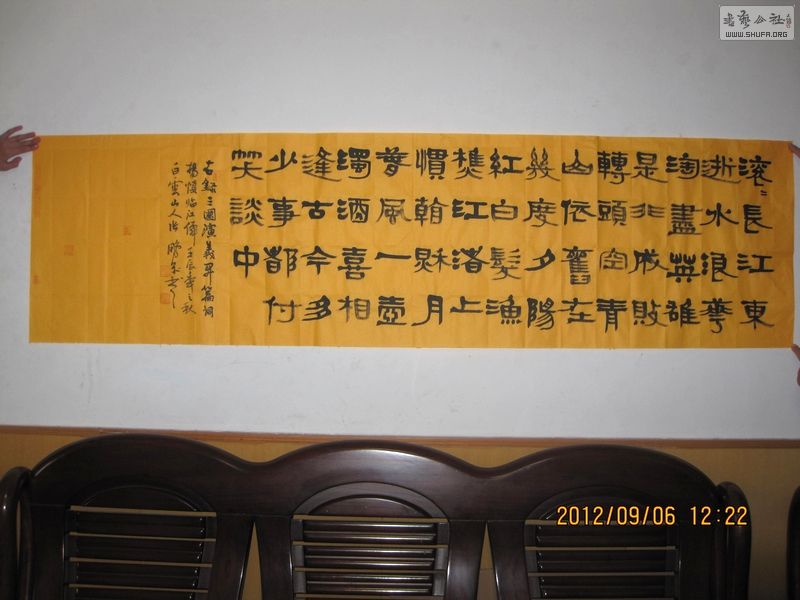 滚〻長江東
逝水浪華
淘盡英雄
是非成敗
轉頭空青
山依舊在
幾度夕陽
紅白髮漁
樵江渚上
慣看秋月
春風一壺
濁酒喜相
逢古今多
少事都付
笑談中
右錄三國演義開篇詞
楊慎臨江僊壬辰年之秋
白雲山人
書藝公社
WWW.SHUFA.ORG
2012/09/06 12:22